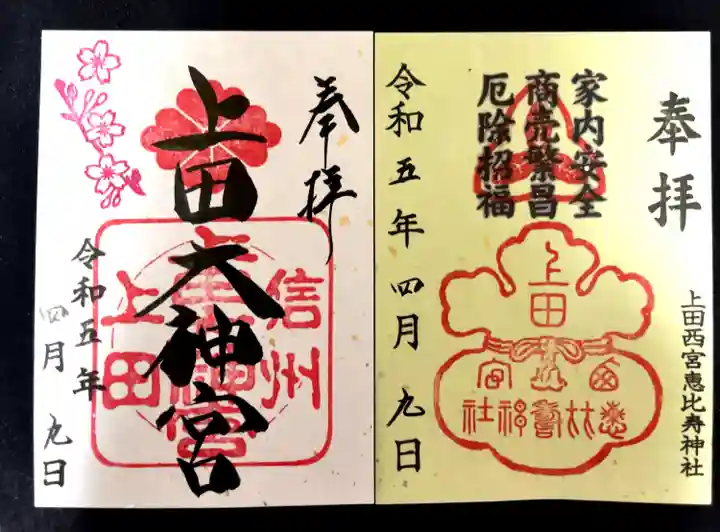 奉拝
上田大神宮
信州
上田
令和五年
四月九日
奉拝
上田西宮恵比寿神社
家内安全
商売繁昌
厄除招福
令和五年四月九日
上田